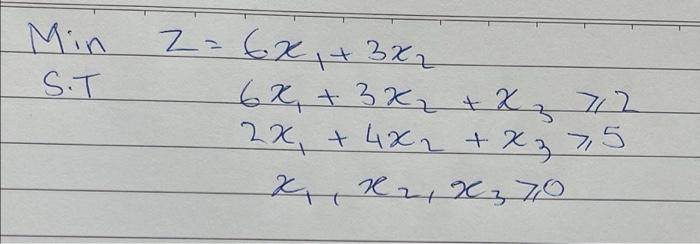 Min Z = 6x₁ + 3x₂
S.T 6x₁ + 3x₂ + x₃ ≥ 2
2x₁ + 4x₂ + x₃ ≥ 5
x₁, x₂, x₃ ≥ 0